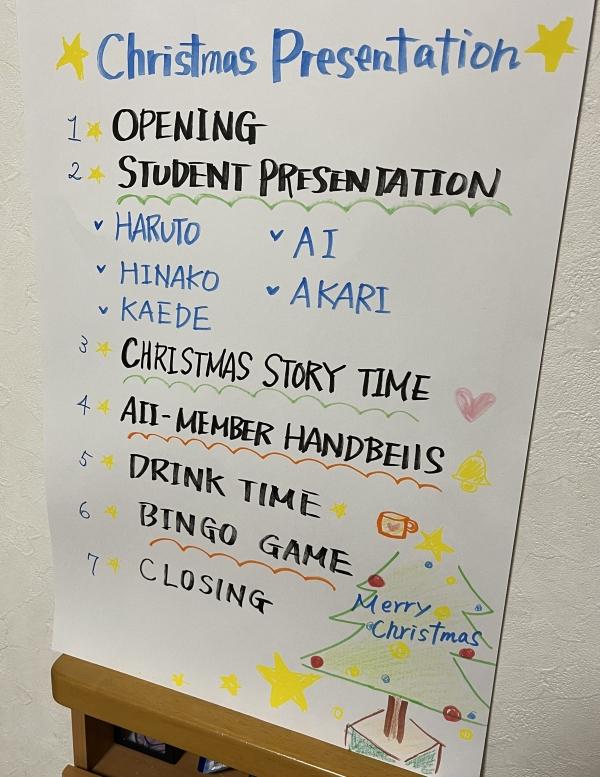 Christmas Presentation
1 OPENING
2 STUDENT PRESENTATION
HARUTO
AI
HINAKO
AKARI
KAEDE
3 CHRISTMAS STORY TIME
4 All-MEMBER HANDBEllS
5 DRINK TIME
6 BINGO GAME
7 CLOSING
Merry
Christmas